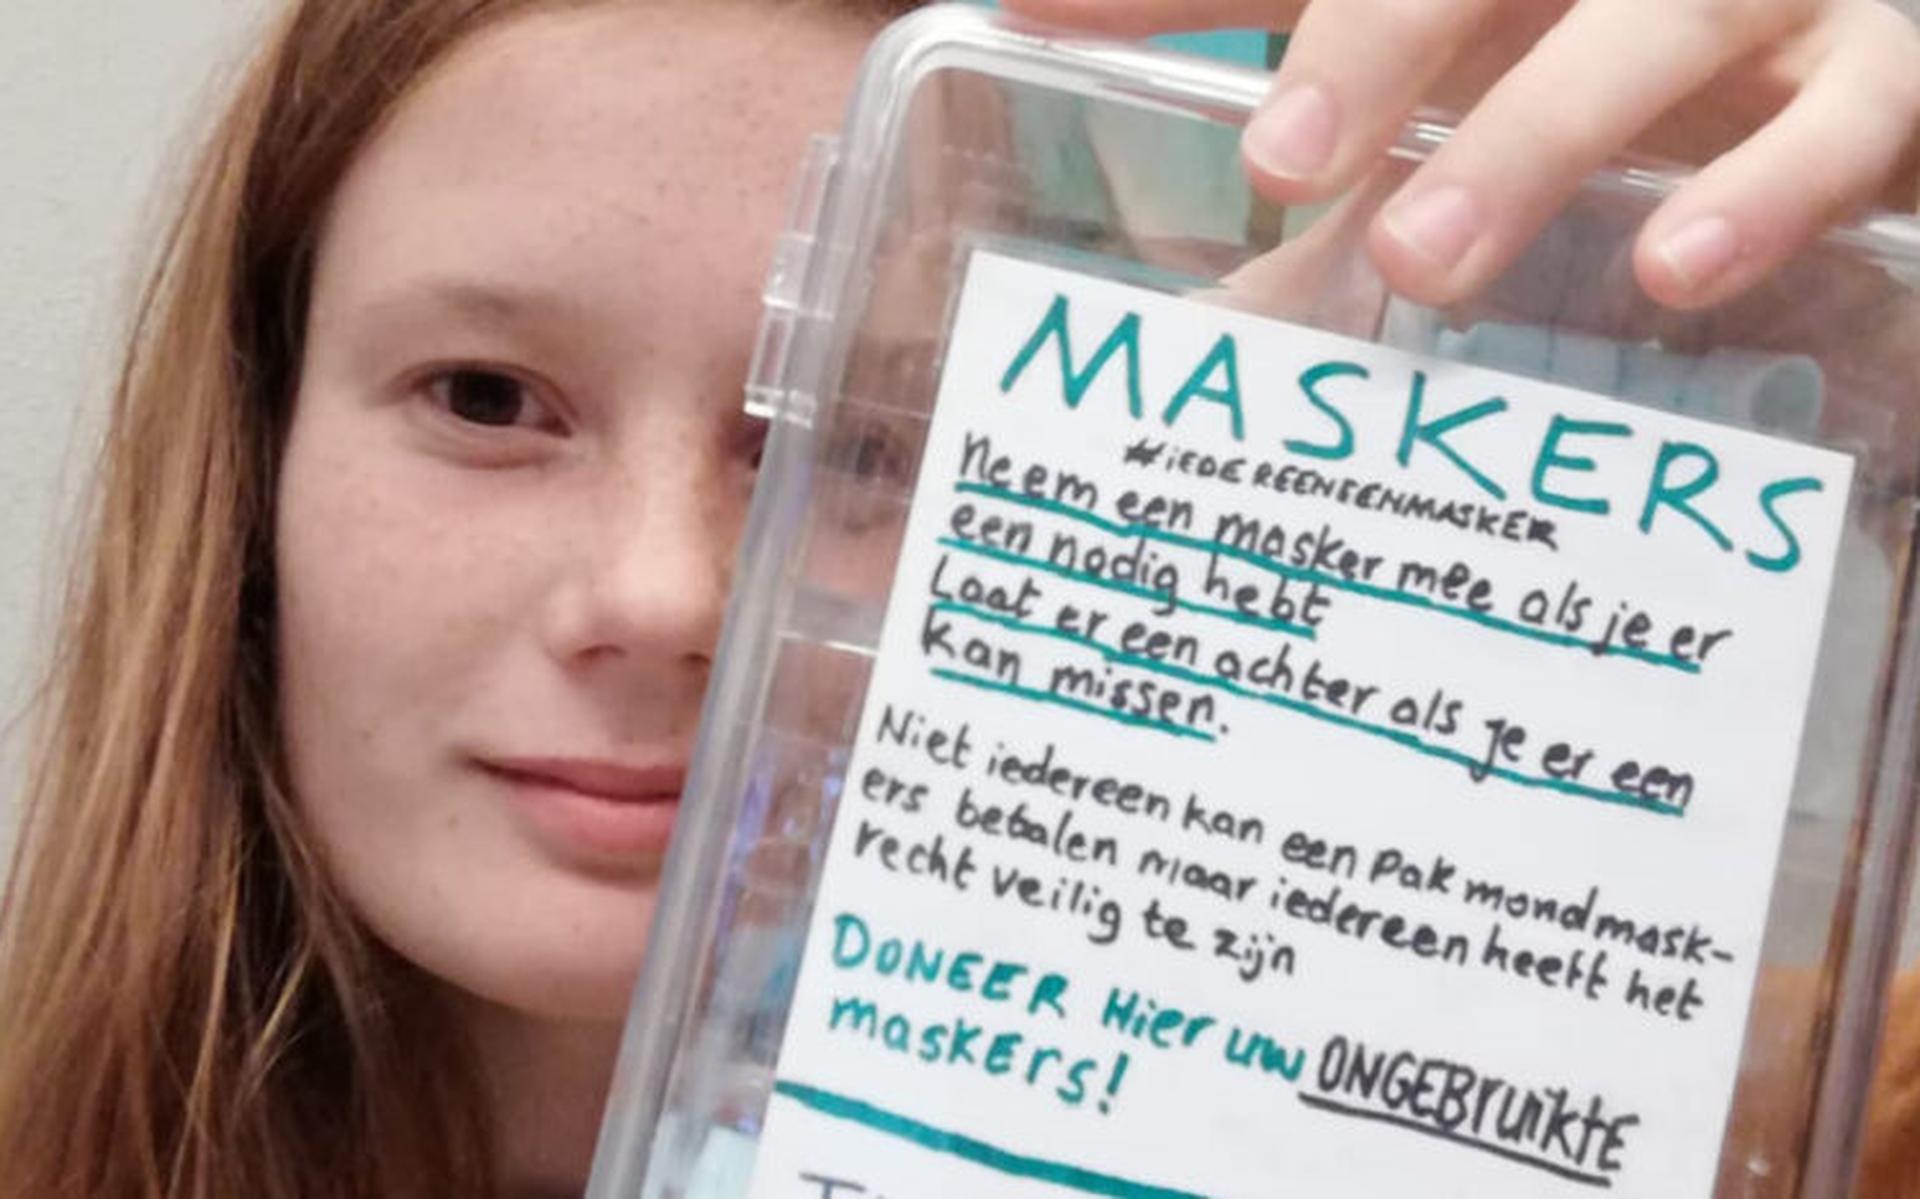 MASKERS
#iEDEREENEENMASKER
Neem een masker mee als je er
een nodig hebt
Laat er een achter als je er een
kan missen.
Niet iedereen kan een pak mondmask-
ers betalen maar iedereen heeft het
recht veilig te zijn
DONEER Hier uw ONGEBruikte
maskers!